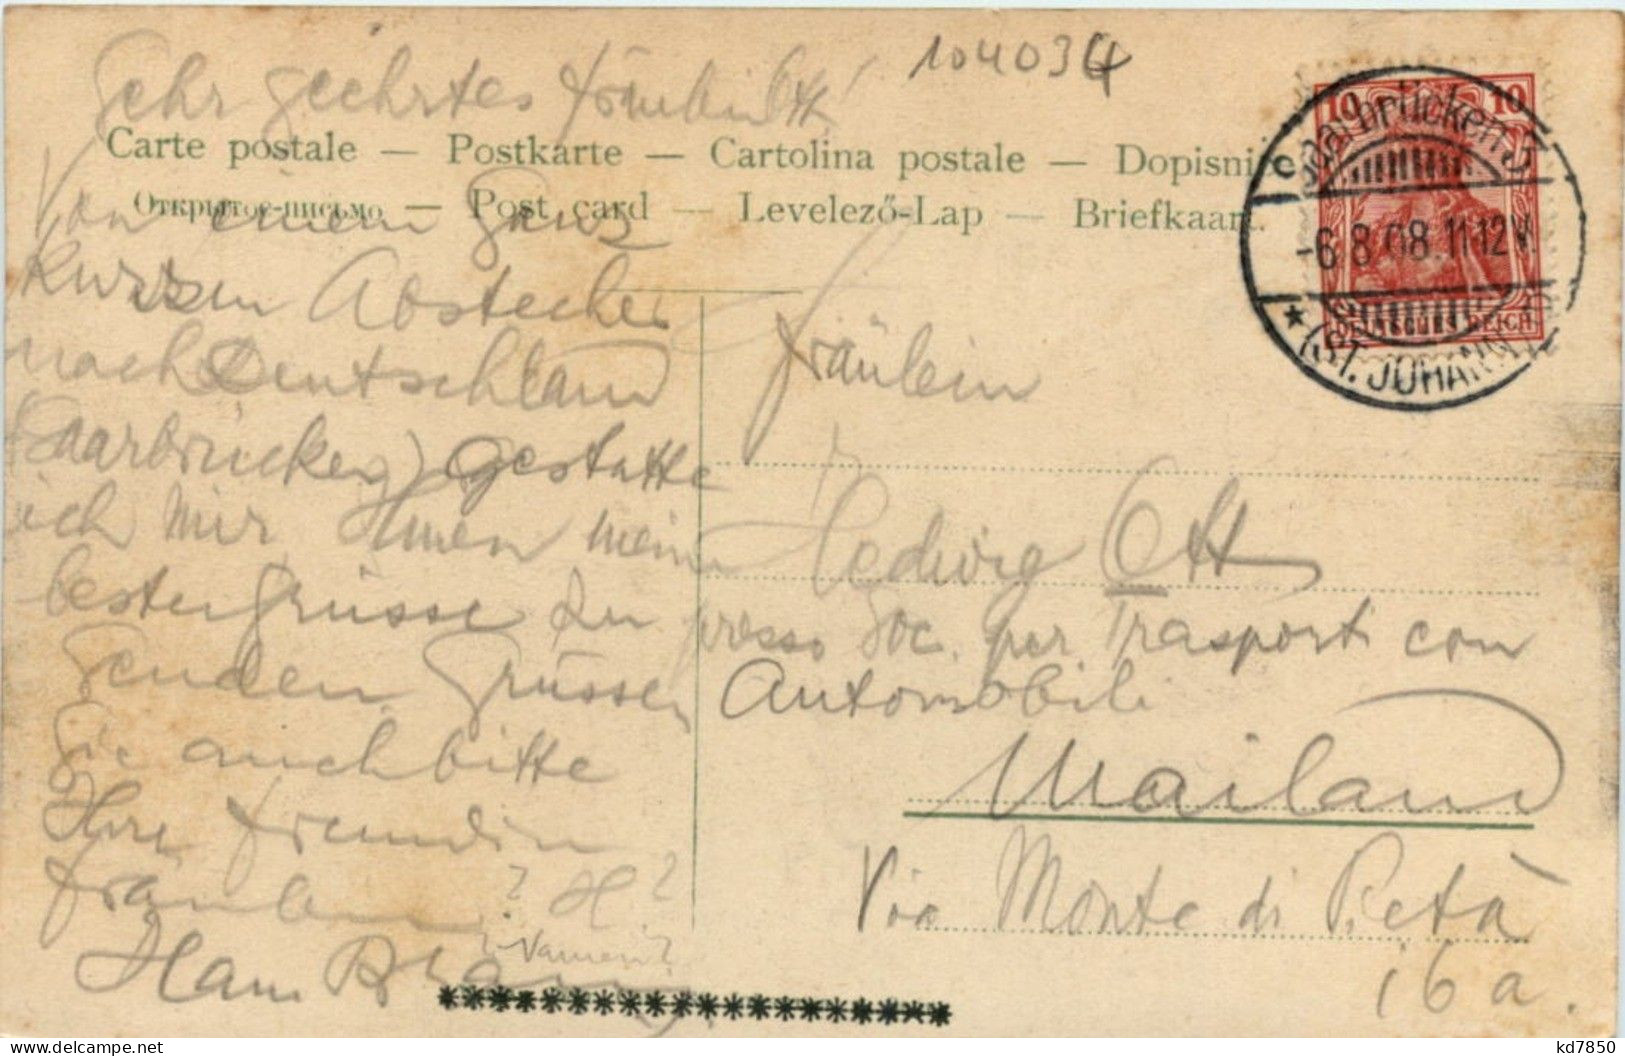 104034
Sehr geehrtes Fräulein Ott
Carte postale — Postkarte — Cartolina postale — Dopisnice
Открытое-письмо — Post card — Levelező-Lap — Briefkaart.
Von einem ganz
kurzen Abstecher
nach Deutschland
(Saarbrücken) gestatte
ich mir Ihnen meine
besten Grüsse zu
senden. Grüssen
Sie auch bitte
Ihre Freundin
Fräulein ? H ?
? Namen ?
Hans
Fräulein
Hedwig Ott
presso Soc. per Trasporti con
Automobili
Mailand
Via Monte di Pietà
16 a.
10 10
DEUTSCHES REICH
Saarbrücken 5
-6.8.08.11-12V.
* (ST. JOHANN)
delcampe.net
kd7850